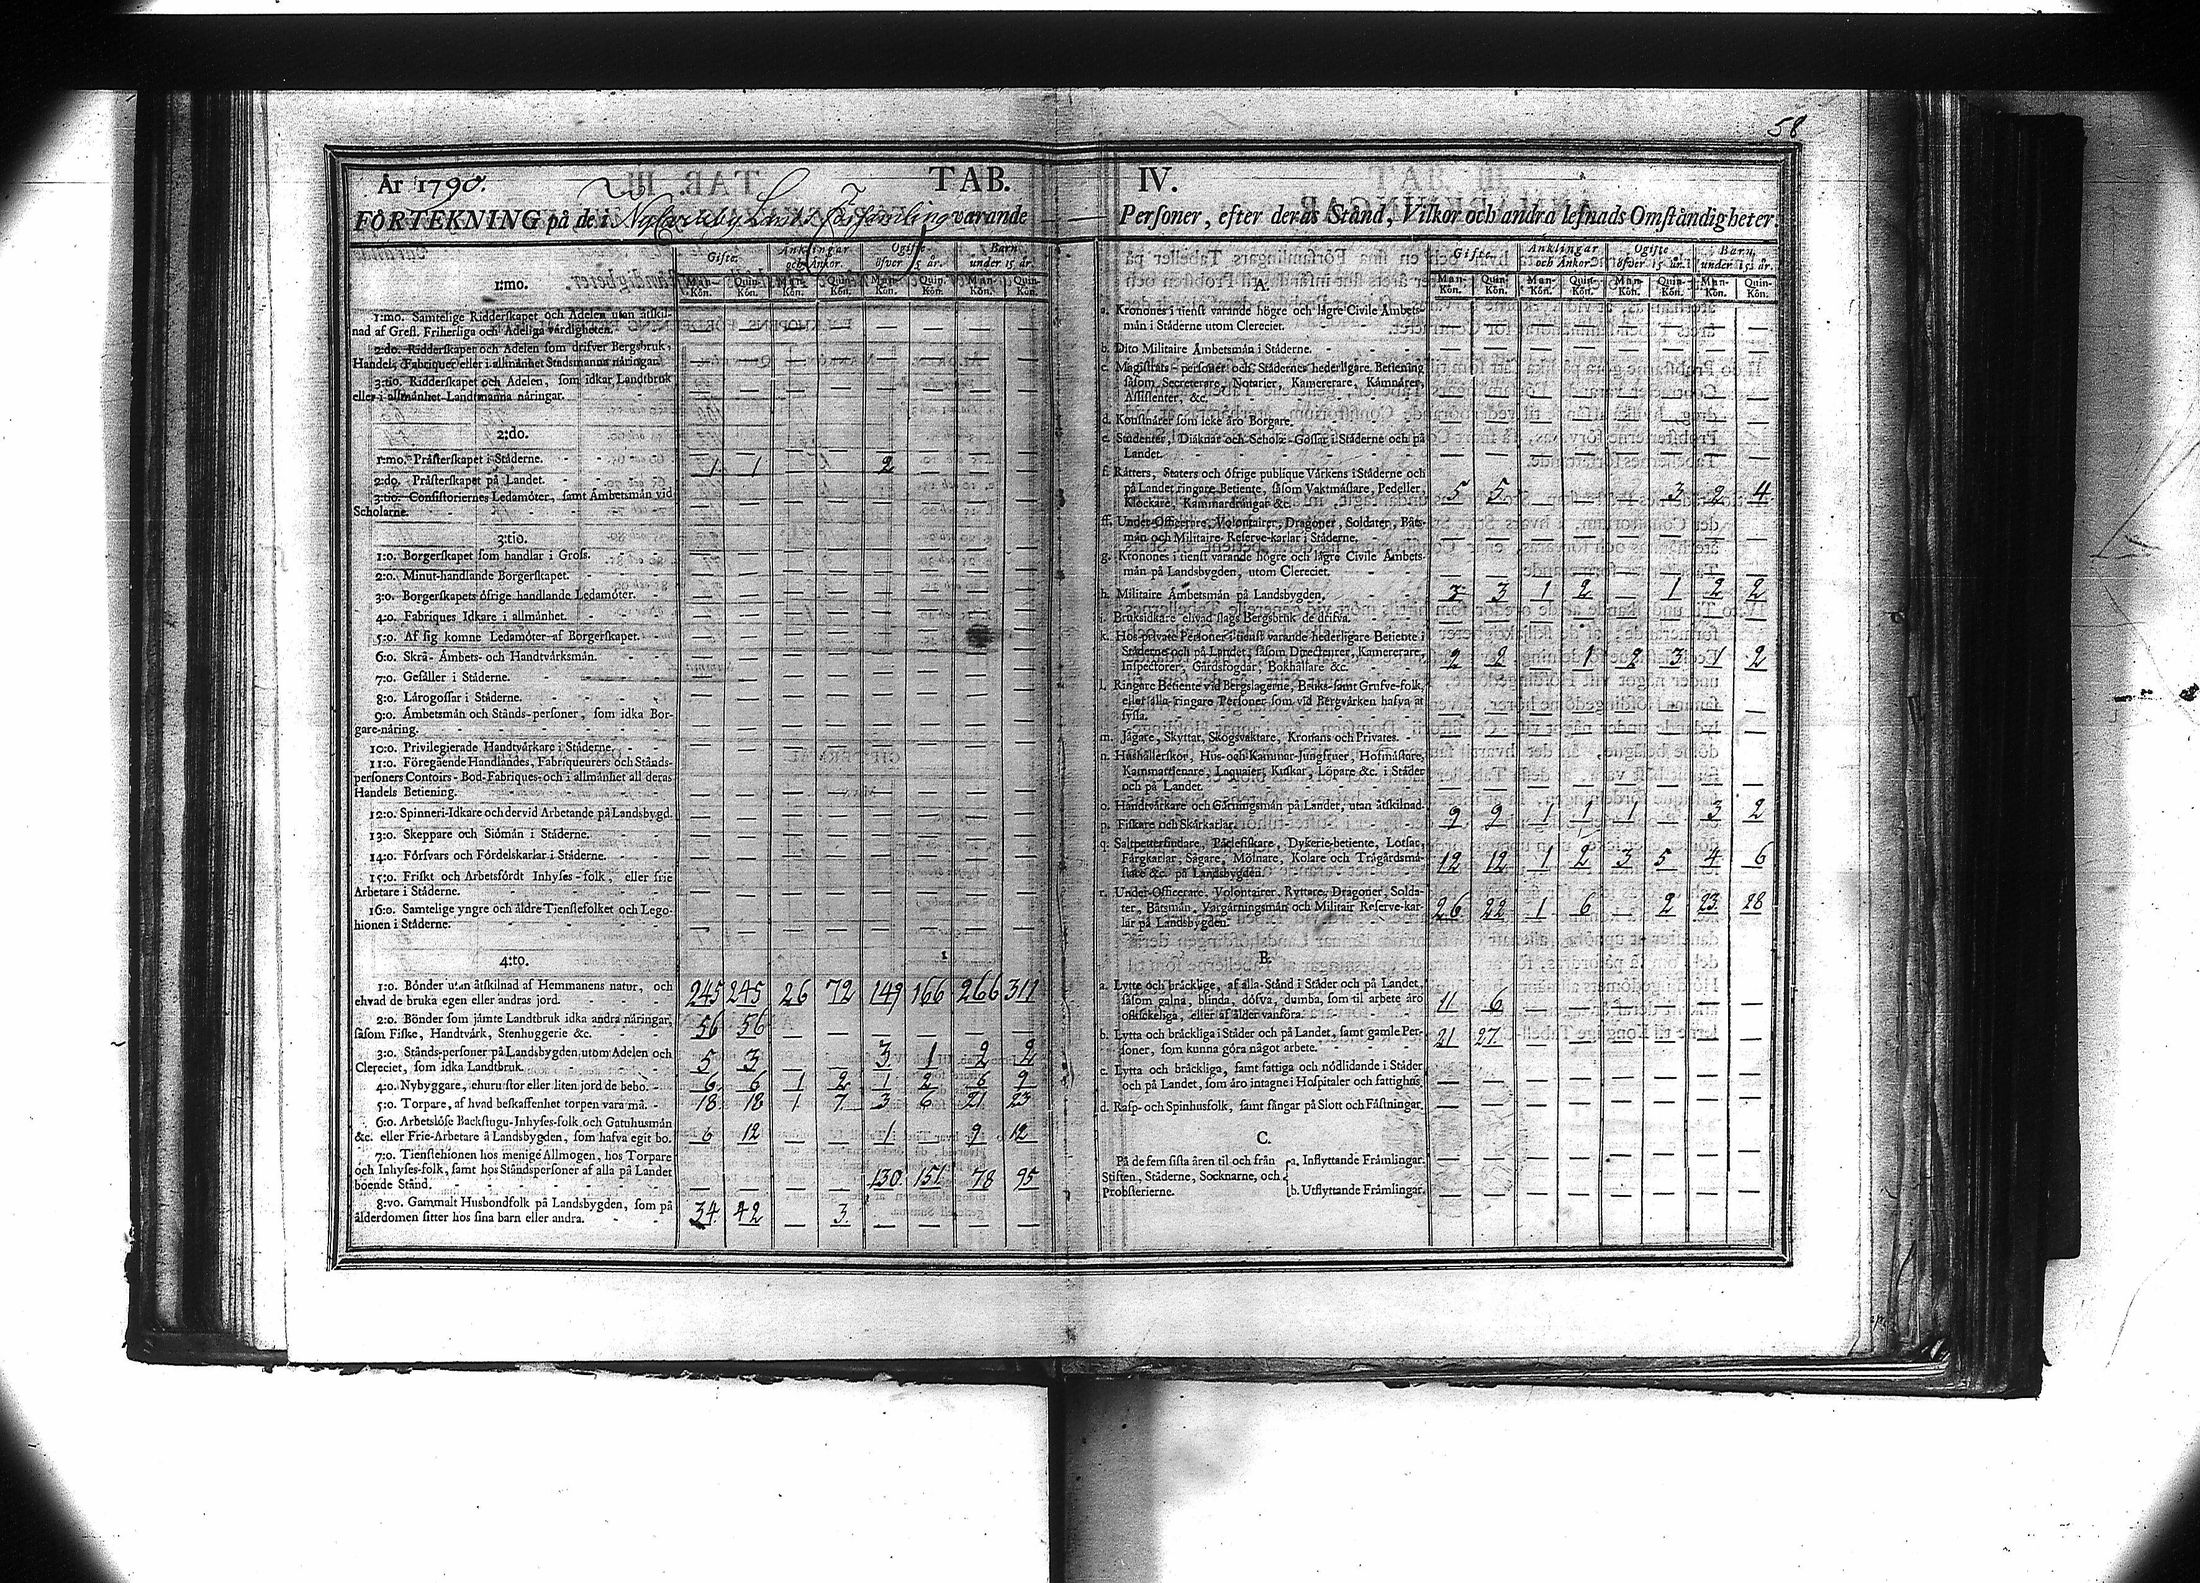 58
År 1790. TAB. IV.
FÖRTEKNING på de i Nycarleby Lands Församling varande Personer, efter deras Stånd, Vilkor och andra lefnads Omståndigheter.
Gifte. Anklingar och Ankor. Ogifte öfver 15 år. Barn under 15 år.
Man-Kön. Quin-Kön. Man-Kön. Quin-Kön. Man-Kön. Quin-Kön. Man-Kön. Quin-Kön.
1:mo.
1:mo. Samtelige Ridderskapet och Adelen utan åtskil-
nad af Grefl. Friherliga och Adeliga värdigheten. — — — — — — — —
2:do. Ridderskapet och Adelen som drifver Bergsbruk,
Handel, Fabriquer eller i allmänhet Stadsmanna näringar. — — — — — — — —
3:tio. Ridderskapet och Adelen, som idkar Landtbruk
eller i allmänhet Landtmanna näringar. — — — — — — — —
2:do.
1:mo. Prästerskapet i Städerne. — — — — — — — —
2:do. Prästerskapet på Landet. 1 1 — — 2 — — —
3:tio. Consistoriernes Ledamöter, samt Ämbetsmän vid
Scholarne. — — — — — — — —
3:tio.
1:o. Borgerskapet som handlar i Gross. — — — — — — — —
2:o. Minut-handlande Borgerskapet. — — — — — — — —
3:o. Borgerskapets öfrige handlande Ledamöter. — — — — — — — —
4:o. Fabriques Idkare i allmänhet. — — — — — — — —
5:o. Af sig komne Ledamöter af Borgerskapet. — — — — — — —
6:o. Skrå- Ämbets- och Handtvärksmän. — — — — — — — —
7:o. Gesäller i Städerne. — — — — — — — —
8:o. Lärogossar i Städerne. — — — — — — — —
9:o. Ämbetsmän och Stånds-personer, som idka Bor-
gare-näring. — — — — — — — —
10:o. Privilegierade Handtvärkare i Städerne. — — — — — — — —
11:o. Föregående Handlandes, Fabriqueurers och Stånds-
personers Contoirs- Bod- Fabriques- och i allmänhet all deras
Handels Betiening. — — — — — — — —
12:o. Spinneri-Idkare och dervid Arbetande på Landsbygd. — — — — — — — —
13:o. Skeppare och Siömän i Städerne. — — — — — — — —
14:o. Försvars och Fördelskarlar i Städerne. — — — — — — — —
15:o. Friskt och Arbetsfördt Inhyses-folk, eller frie
Arbetare i Städerne. — — — — — — — —
16:o. Samtelige yngre och äldre Tienstefolket och Lego-
hionen i Städerne. — — — — — — — —
4:to.
1:o. Bönder utan åtskilnad af Hemmanens natur, och
ehvad de bruka egen eller andras jord. 245 245 26 72 149 166 266 311
2:o. Bönder som jämte Landtbruk idka andra näringar,
såsom Fiske, Handtvärk, Stenhuggerie &c. 56 56
3:o. Stånds-personer på Landsbygden utom Adelen och
Clereciet, som idka Landtbruk. 5 3 — — 3 1 2 2
4:o. Nybyggare, ehuru stor eller liten jord de bebo. 6 6 1 2 1 2 6 9
5:o. Torpare, af hvad beskaffenhet torpen vara må. 18 18 1 7 3 6 21 23
6:o. Arbetslöse Backstugu-Inhyses-folk och Gatuhusmän
&c. eller Frie-Arbetare å Landsbygden, som hafva egit bo. 6 12 — — 1 — 9 12
7:o. Tienstehionen hos menige Allmogen, hos Torpare
och Inhyses-folk, samt hos Ståndspersoner af alla på Landet
boende Stånd. — — — — 130 151 78 95
8:vo. Gammalt Husbondfolk på Landsbygden, som på
ålderdomen sitter hos sina barn eller andra. 34 42 — 3 — — — —
Gifte. Anklingar och Ankor. Ogifte öfver 15 år. Barn under 15 år.
Man-Kön. Quin-Kön. Man-Kön. Quin-Kön. Man-Kön. Quin-Kön. Man-Kön. Quin-Kön.
A.
a. Kronones i tienst varande högre och lägre Civile Ämbets-
män i Städerne utom Clereciet. — — — — — — — —
b. Dito Militaire Ämbetsmän i Städerne. — — — — — — — —
c. Magistrats-personer och Städernes hederligare Betiening
såsom Secreterare, Notarier, Kamererare, Kämnärer,
Assistenter, &c. — — — — — — — —
d. Konstnärer som icke äro Borgare. — — — — — — — —
e. Studenter, Diäknar och Scholæ-Gossar i Städerne och på
Landet. — — — — — — — —
f. Rätters, Staters och öfrige publique Värkens i Städerne och
på Landet ringare Betiente, såsom Vaktmästare, Pedeller,
Klockare, Kammardrängar &c. 5 5 — — — 3 2 4
ff. Under-Officerare, Volontairer, Dragoner, Soldater, Båts-
män och Militaire Reserve-karlar i Städerne. — — — — — — — —
g. Kronones i tienst varande högre och lägre Civile Ämbets-
män på Landsbygden, utom Clereciet. — — — — — — — —
h. Militaire Ämbetsmän på Landsbygden. 3 3 1 2 — 1 2 2
i. Bruksidkare ehvad slags Bergsbruk de drifva. — — — — — — — —
k. Hos private Personer i tienst varande hederligare Betiente i
Städerne och på Landet, såsom Directeurer, Kamererare,
Inspectorer, Gårdsfogdar, Bokhållare &c. 2 2 — 1 2 3 1 2
l. Ringare Betiente vid Bergslagerne, Bruks- samt Grufve-folk,
eller alla ringare Personer som vid Bergvärken hafva at
syssla. — — — — — — — —
m. Jägare, Skyttar, Skogsvaktare, Kronans och Privates. — — — — — — — —
n. Hushållerskor, Hus- och Kammar-Jungfruer, Hofmästare,
Kammartienare, Laquaier, Kuskar, Löpare &c. i Städer
och på Landet. — — — — — — — —
o. Handtvärkare och Gärningsmän på Landet, utan åtskilnad. 9 9 1 1 1 — 3 2
p. Fiskare och Skärkarlar.
q. Saltpettersiudare, Pärlefiskare, Dykerie-betiente, Lotsar,
Färgkarlar, Sågare, Mölnare, Kolare och Trägårdsmä-
stare &c. på Landsbygden. 12 12 1 2 3 5 4 6
r. Under-Officerare, Volontairer, Ryttare, Dragoner, Solda-
ter, Båtsmän, Vargärningsmän och Militair Reserve-kar-
lar på Landsbygden. 26 22 1 6 — 2 23 28
B.
a. Lytte och bräcklige, af alla Stånd i Städer och på Landet,
såsom galna, blinda, döfva, dumba, som til arbete äro
oskickeliga, eller af ålder vanföra. 11 6 — — — — — —
b. Lytta och bräckliga i Städer och på Landet, samt gamle Per-
soner, som kunna göra något arbete. 21 27 — — — — — —
c. Lytta och bräckliga, samt fattiga och nödlidande i Städer
och på Landet, som äro intagne i Hospitaler och fattighus. — — — — — — — —
d. Rasp- och Spinhusfolk, samt fångar på Slott och Fästningar. — — — — — — — —
C.
På de fem sista åren til och från Stiften, Städerne, Socknarne, och Probsterierne.
a. Inflyttande Främlingar. — — — — — — — —
b. Utflyttande Främlingar. — — — — — — — —